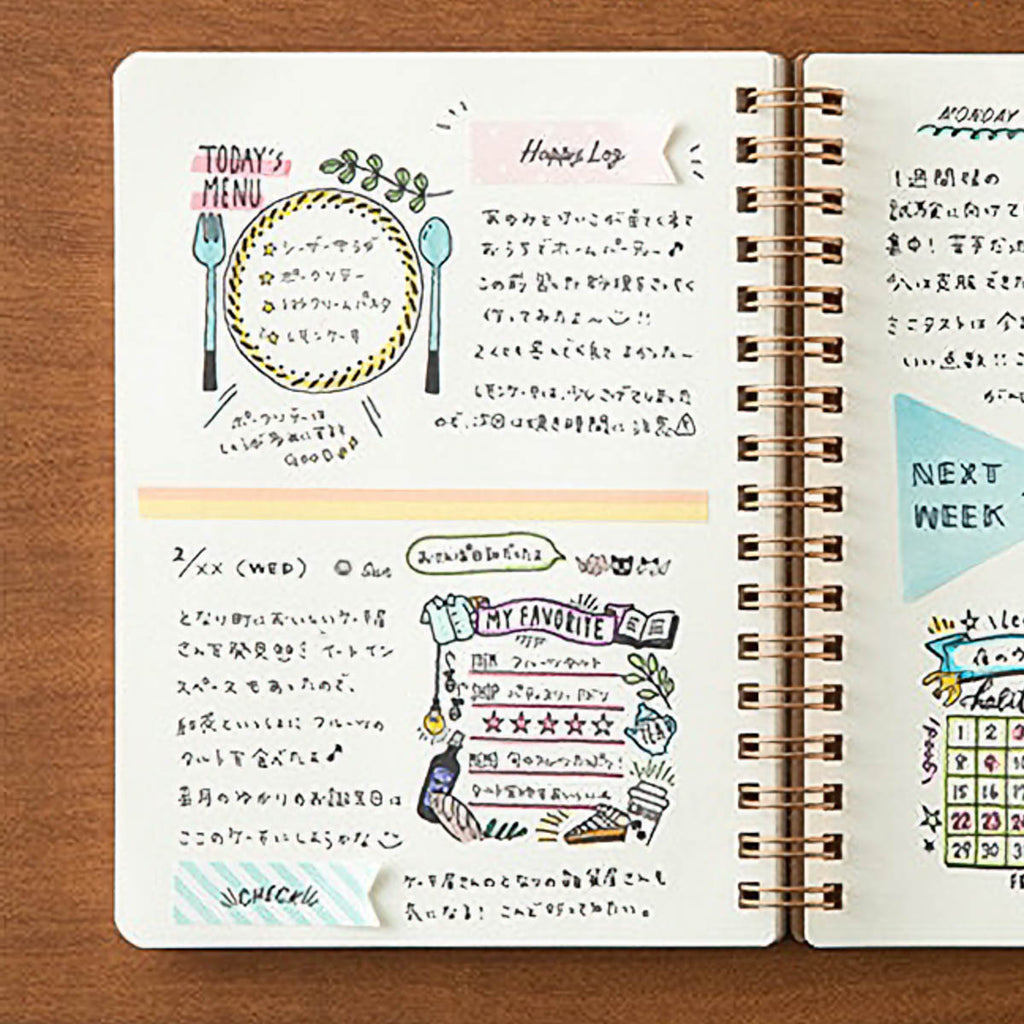 TODAY'S
MENU
シーザーサラダ
ポークソテー
クリームパスタ
レモンケーキ
ポークソテーは
GOOD
Happy Log
おうちでホームパーティー♪
この前習った料理をさっそく
作ってみたよ〜!!
とっても喜んでくれてよかったー
レモンケーキは、少しこげてしまった
ので、次回は焼き時間に注意
2/XX (WED)
Sun
おさんぽ日和だったよ
となり町においしいケーキ屋
さんを発見!! イートイン
スペースもあったので、
といっしょに フルーツの
タルトを食べたよ♪
来月のゆかりのお誕生日は
ここのケーキにしようかな
CHECK!
MY FAVORITE
ITEM フルーツタルト
SHOP パティスリー
☆☆☆☆☆
MEMO 旬のフルーツたっぷり!
ケーキ屋さんのとなりの雑貨屋さんも
気になる! こんど行ってみたい。
MONDAY
1週間後の
試験に向けて
集中! 苦手だった
は克服できた
ミニテストは
いい点数!!
NEXT
WEEK
1 2 3
8 9 10
15 16 17
22 23
29 30